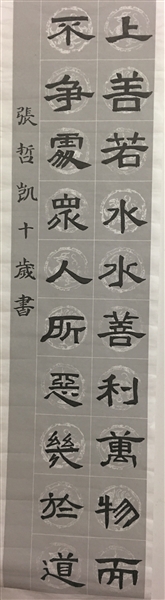 上善若水水善利萬物而
不争處眾人所惡幾於道
張哲凱十歲書